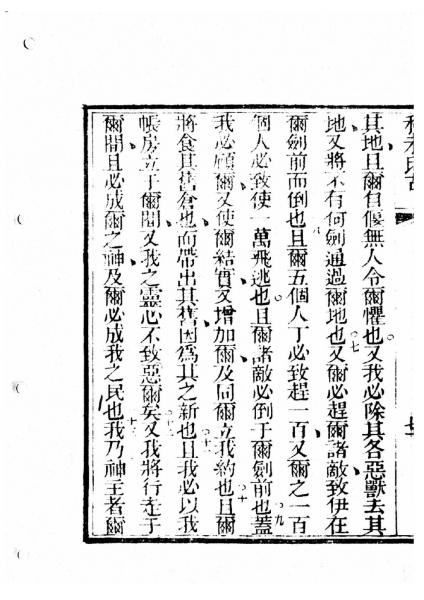 其地且爾自偃無人令爾懼也又我必除其各惡獸去其
地又將不有何劍通過爾地也七又爾必趕爾諸敵致伊在
爾劍前而倒也八且爾五個人丁必致趕一百又爾之一百
個人必致使一萬飛逃也且爾諸敵必倒于爾劍前也九蓋
我必顧爾又使爾結實又增加爾及同爾立我約也十且爾
將食其舊倉也而帶出其舊因為其之新也十一且我必以我
帳房立于爾間又我之靈心不致惡爾矣十二又我將行走于
爾間且必成爾之神及爾必成我之民也十三我乃神主者爾